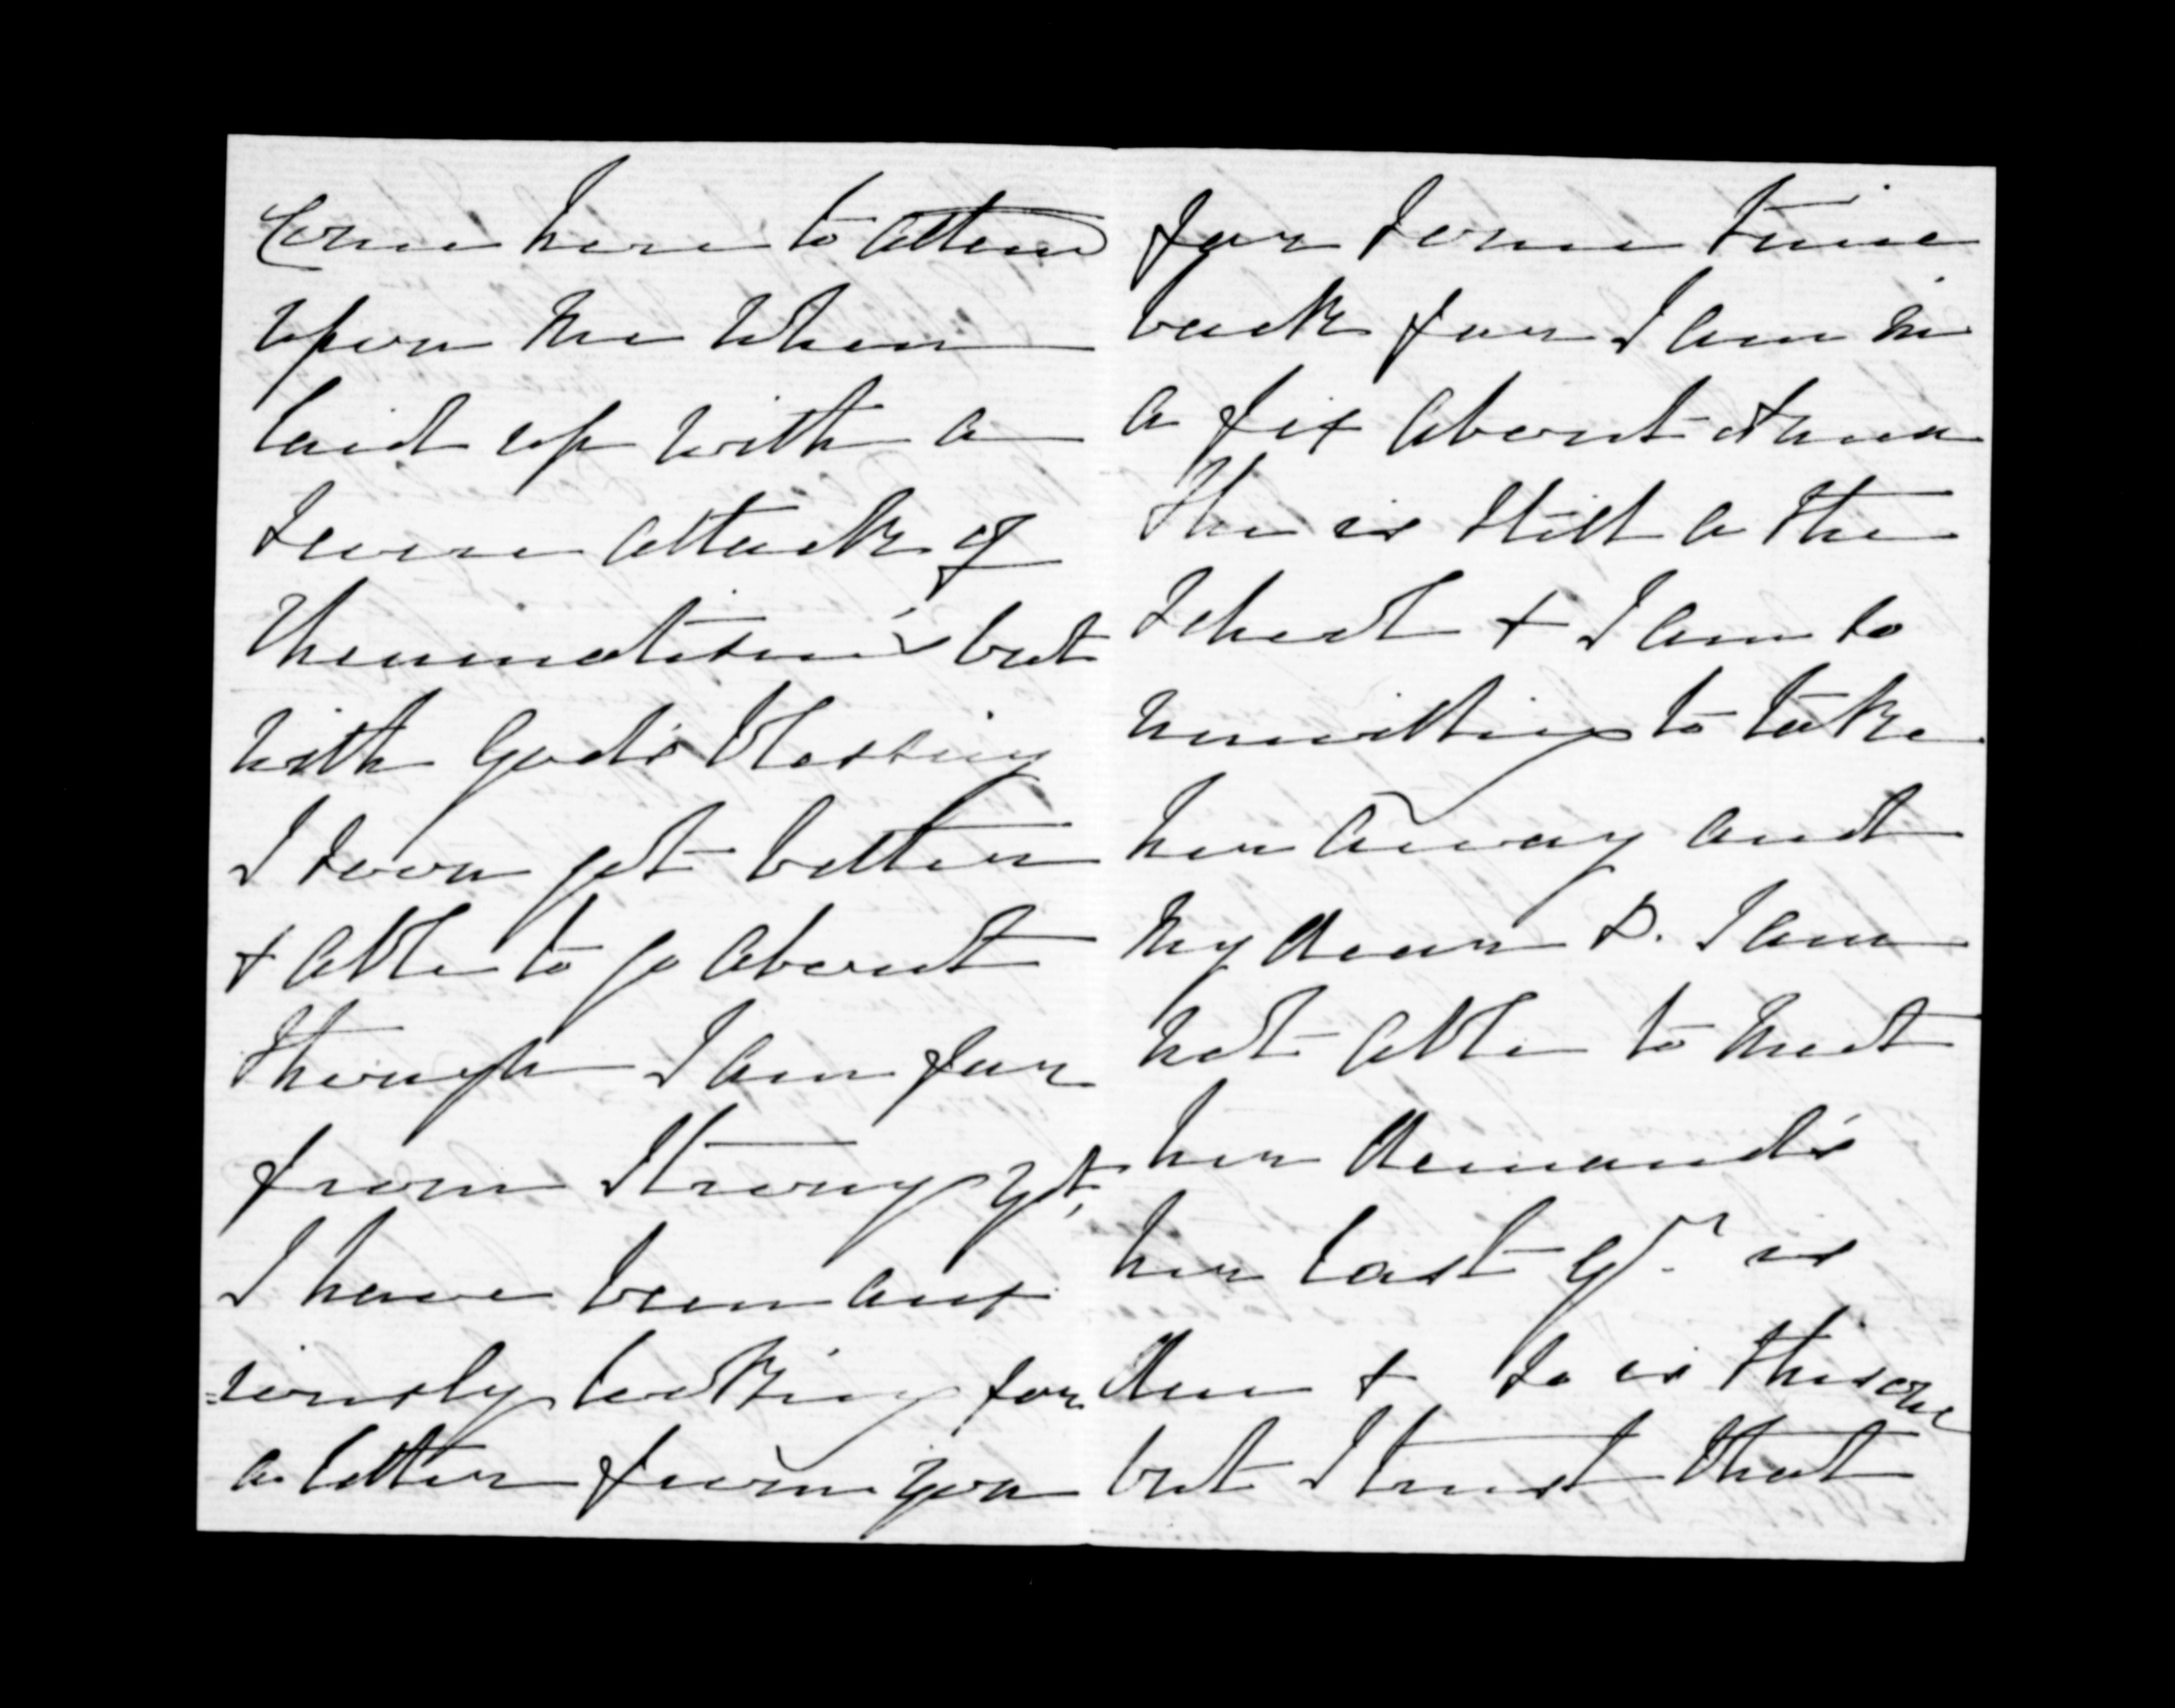 Come here to attend
upon me when
laid up with a
severe attack of
Rheumatism's but
with God's blessing
I soon got better
& able to go about
though I am far
from strong yet,
I have been anx
=iously looking for
a letter from you
for some time
back for I am in
a fix about
She is still a the
School & I am so
unwilling to take
her away and
My dear D. I am
not able to meet
her demand's
her last qr. is
due & so is this one
but I trust that